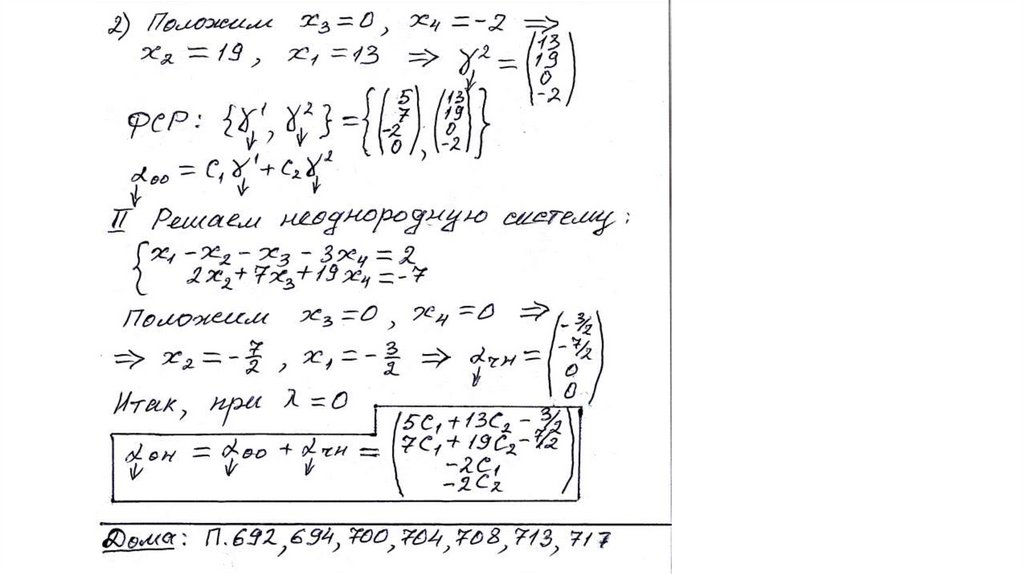 2) Положим x₃=0, x₄=-2 ⇒
x₂=19, x₁=13 ⇒ γ²=(13 19 0 -2)
ФСР: {γ¹, γ²}={(5 7 -2 0), (13 19 0 -2)}
α₀₀=C₁γ¹+C₂γ²
II Решаем неоднородную систему:
x₁-x₂-x₃-3x₄=2
2x₂+7x₃+19x₄=-7
Положим x₃=0, x₄=0 ⇒
⇒ x₂=-7/2, x₁=-3/2 ⇒ αчн=(-3/2 -7/2 0 0)
Итак, при λ=0
αон=αоо+αчн=(5C₁+13C₂-3/2 7C₁+19C₂-7/2 -2C₁ -2C₂)
Дома: П.692,694,700,704,708,713,717